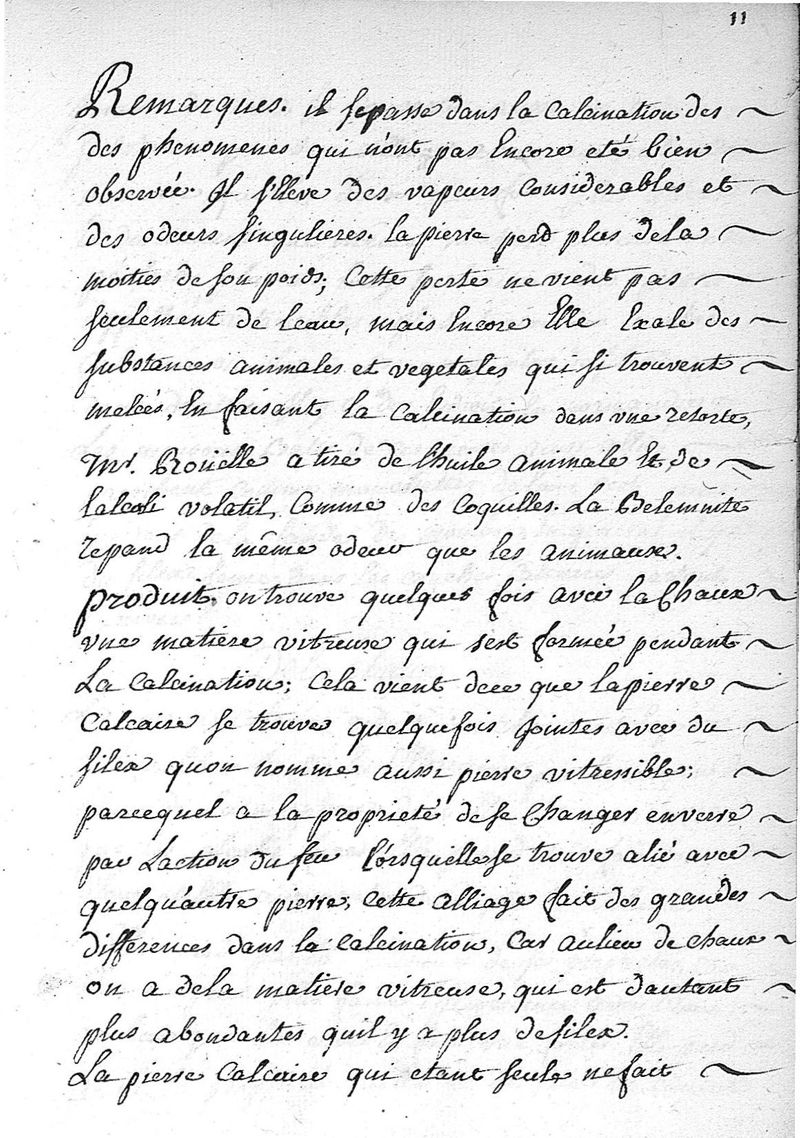 11
Remarques. il se passe dans la Calcination des ~
des phenomenes qui n'ont pas Encore eté bien ~
observée. Il s'Eleve des vapeurs Considerables et ~
des odeurs singulieres. la pierre perd plus dela ~
moities de son poids; Cette perte ne vient pas ~
seulement de leau, mais Encore Elle Exale des ~
substances animales et vegetales qui si trouvent ~
melées, En faisant la Calcination dans vne retorte,
Mr. Roüelle a tiré de l'huile animale Et de ~
lalcali volatil, Comme des Coquilles. La Belemnite
repand la même odeur que les animaux.
produit. on trouve quelques fois avec la Chaux ~
vne matiere vitreuse qui sest formée pendant ~
La Calcination; Cela vient dece que la pierre ~
Calcaire se trouve quelquefois Jointes avec du ~
silex quon nomme aussi pierre vitressible; ~
parcequel a la proprieté de se Changer en verre ~
par Laction du feu Lorsquelle se trouve alié avec ~
quelqu'autre pierre, Cette Alliage fait des grandes ~
differences dans la Calcination, Car aulieu de chaux ~
on a dela matiere vitreuse, qui est dautant ~
plus abondantes quil y a plus de silex.
La pierre Calcaire qui etant seule ne fait ~